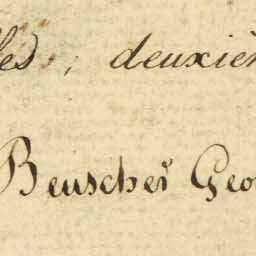 les, deuxiè
Beuscher Geo